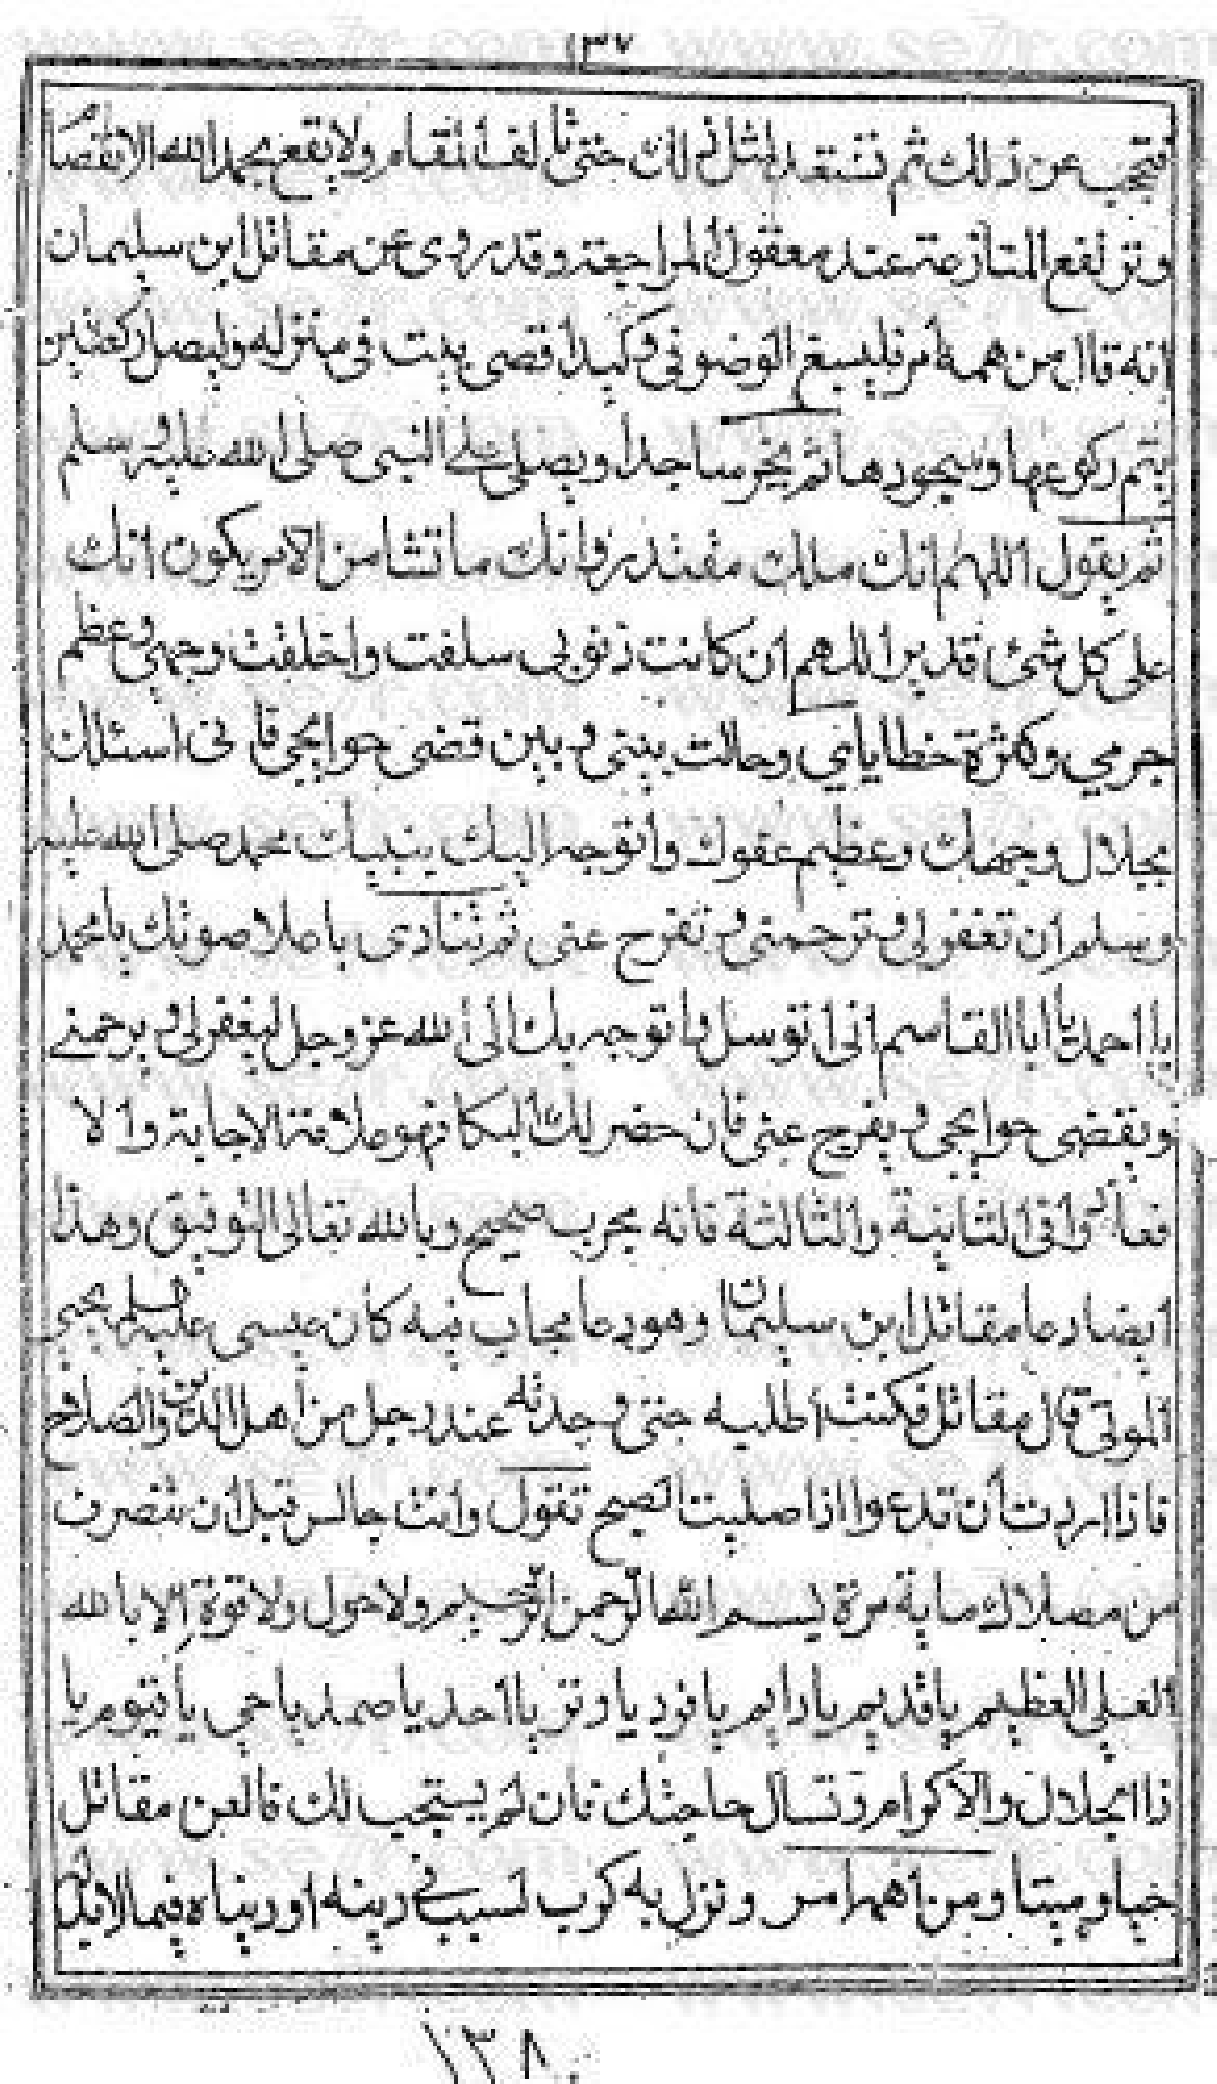 ١٣٧
فتجب عن ذلك ثم تستعد لمثل ذلك حتى تألف المقام ولا يقع بحمد الله الا نقصا
وترتفع المنازعة عند معقول المراجعة وقد روى عن مقاتل ابن سليمان
انه قال من همه أمر فليسبغ الوضو في وكيد أقصى بيت في منزله وليصل ركعتين
يتم ركوعها وسجودها ثم يخر ساجدا ويصلي على النبي صلى الله عليه وسلم
ثم يقول اللهم انك ملك مقتدر وانك ما تشا من الامر يكون انك
على كل شئ قدير اللهم ان كانت ذنوبي سلفت واخلفت وجهي وعظم
جرمي وكثرة خطاياي وحالت بيني وبين قضى حوايجي فاني اسئلك
بجلال وجهك وعظيم عفوك وأتوجه اليك بنبيك محمد صلى الله عليه
وسلم ان تغفر لي وترحمني وتفرج عني ثم تنادى باعلا صوتك يا محمد
يا احمد يا أبا القاسم اني اتوسل وأتوجه بك الى الله عز وجل ليغفر لي ويرحمني
ويقضى حوايجي ويفرج عني فان حضر لك البكا فهو علامة الاجابة والا
فعاود في الثانية والثالثة فانه مجرب صحيح وبالله تعالى التوفيق وهذا
ايضا دعا مقاتل ابن سليمان وهو دعا مجاب فيه كان عيسى عليه السلم يحيى
الموتى قال مقاتل فكنت اطلبه حتى وجدته عند رجل من أهل الدين والصلاح
فاذا اردت أن تدعوا اذا صليت الصبح تقول وانت جالس قبل أن تنصرف
من مصلاك ماية مرة بسم الله الرحمن الرحيم ولا حول ولا قوة الا بالله
العلي العظيم يا قديم يا دايم يا فرد يا وتر يا احد يا صمد يا حي يا قيوم يا
ذا الجلال والاكرام وتسال حاجتك فان لم يستجب لك فالعن مقاتل
حيا وميتا ومن أهمه امر ونزل به كرب لسبب في دينه او دنياه فيما لا
١٣٨